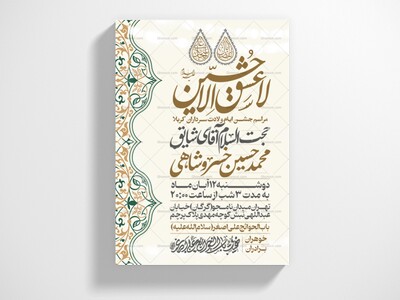 لا عشق الا حسین
مراسم جشن ایام ولادت سرداران کربلا
حجت الاسلام آقای شایق
محمدحسین خسروشاهی
دوشنبه ۱۲ آبان ماه
به مدت ۳ شب از ساعت ۲۰:۰۰
تهران میدان نامجو (گرگان) خیابان
عبداللهی نبش کوچه مهدی پلاک پرچم
باب الحوائج علی اصغر (سلام الله علیه)
خواهران
برادران